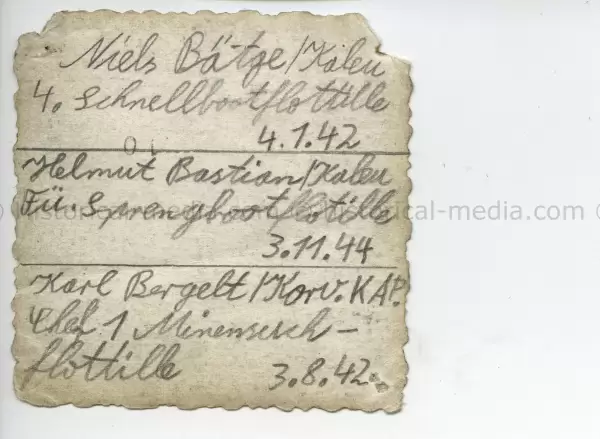 Niels Bätge/Kaleu
4. Schnellbootflottille
4.1.42
Helmut Bastian/Kaleu
Fü. Sprengbootflottille
3.11.44
Karl Bergelt/Korv. KAP.
Chef 1 Minensuch-
flottille
3.8.42